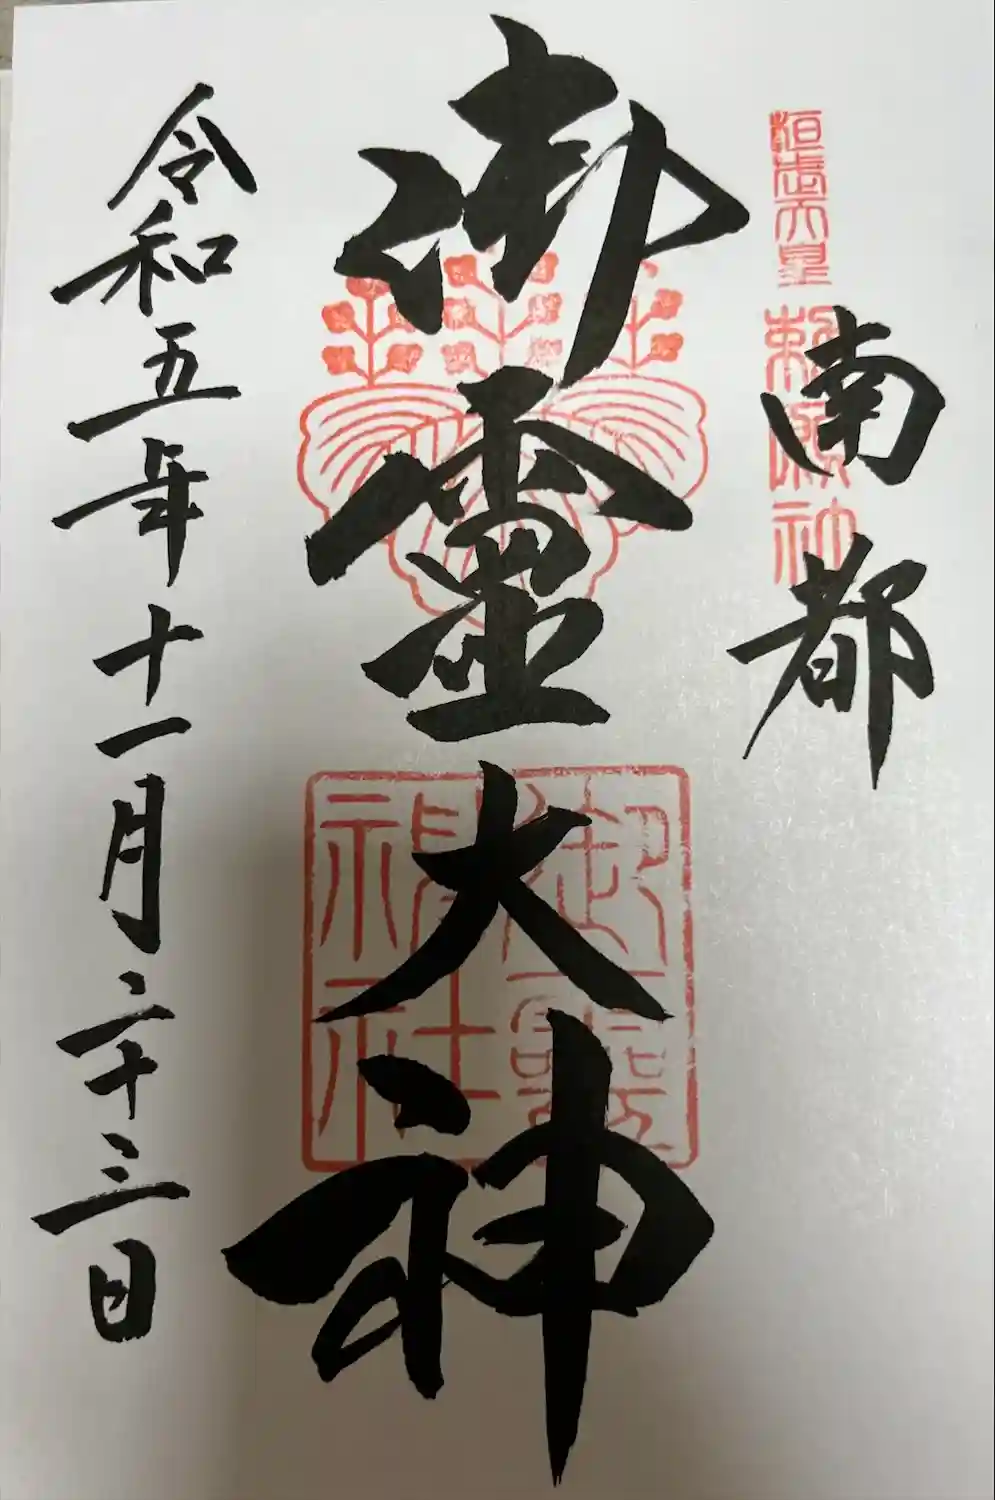 桓武天皇 勅願神
南都
御霊大神
御霊神社
令和五年十一月二十三日